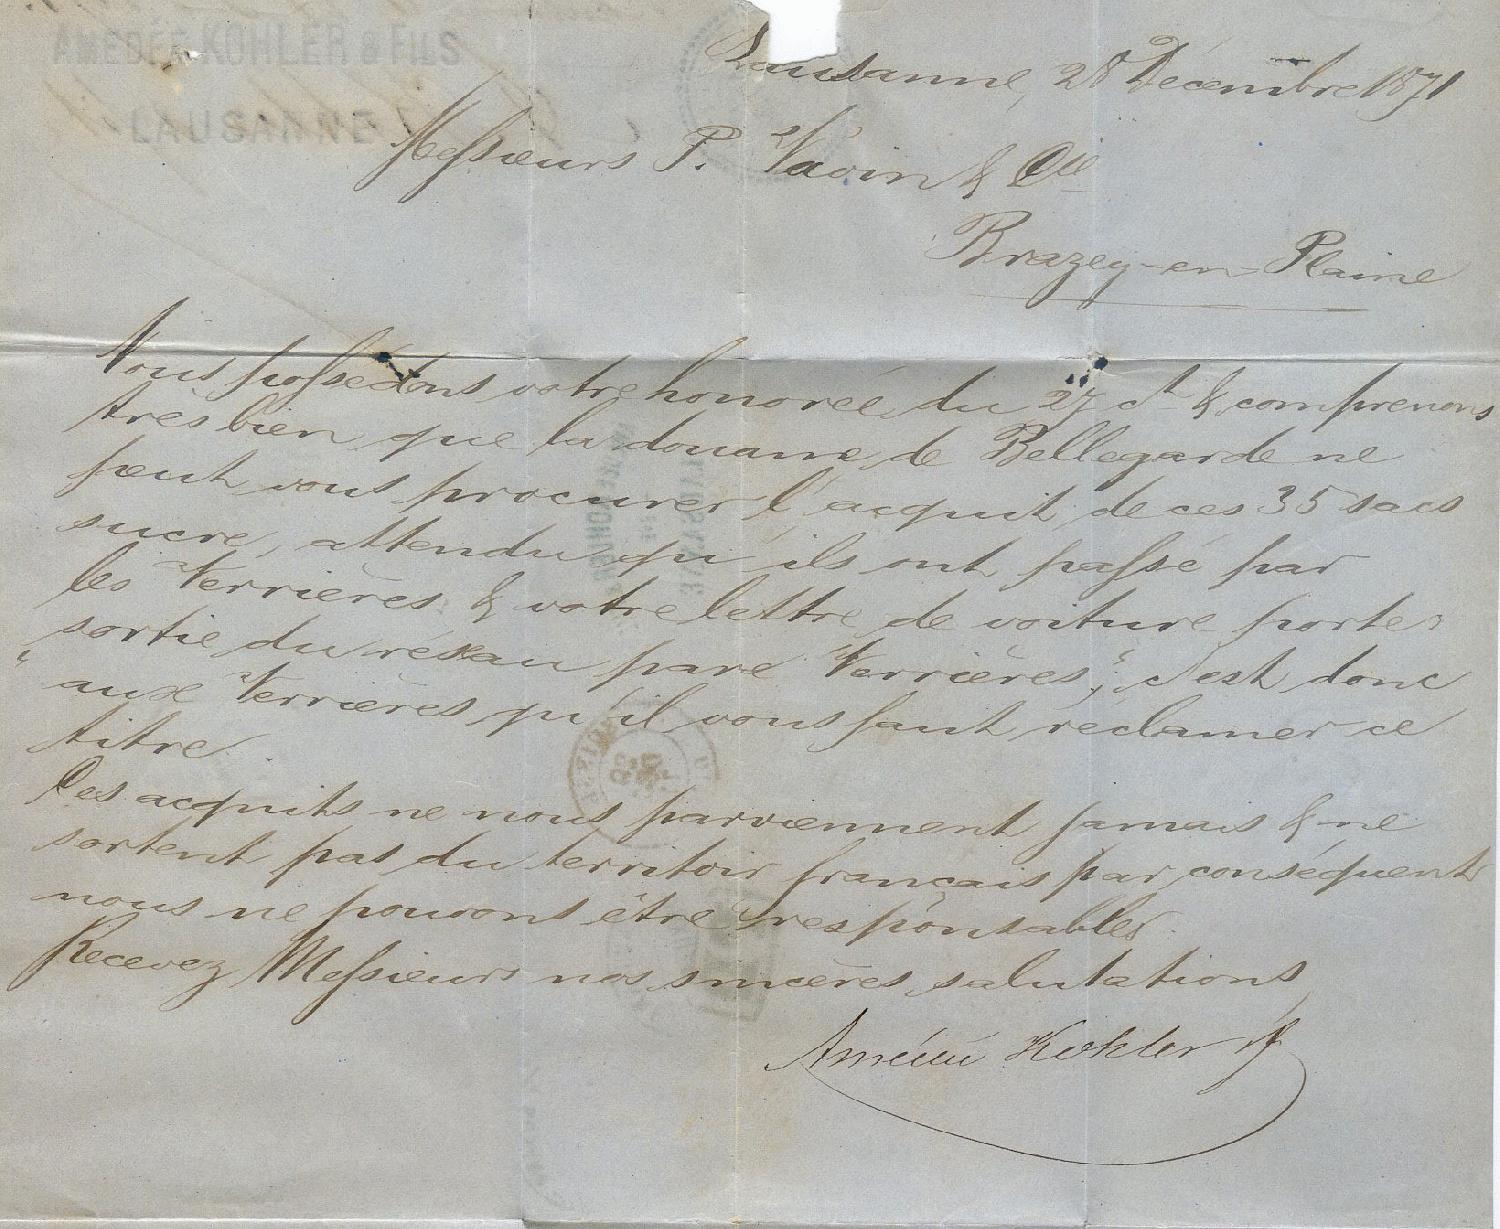 AMEDÉE KOHLER & FILS
LAUSANNE
Lausanne, 28 Décembre 1871
Messieurs P. Vavin & Cie
Brazey-en-Plaine
Nous possédons votre honorée du 27 ct & comprenons
très bien que la douane de Bellegarde ne
peut vous procurer l'acquit de ces 35 sacs
sucre, attendu qu'ils ont passé par
les Verrières & votre lettre de voiture porte
"sortie du réseau par Verrières", c'est donc
aux Verrières qu'il vous faut réclamer ce
titre.
Ces acquits ne nous parviennent jamais & ne
sortent pas du territoir français par conséquent
nous ne pouvons être responsables.
Recevez Messieurs nos sincères salutations
Amédée Kohler & f